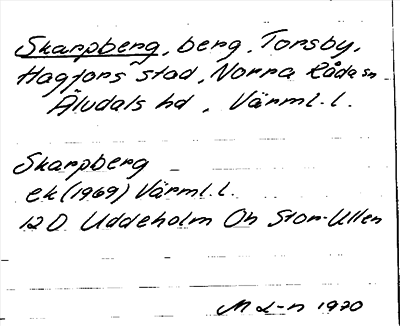 Skarpberg, berg, Torsby,
Hagfors stad, Norra Råda sn
Älvdals hd, Värml. l.
Skarpberg
ek (1969) Värml. l.
12 D Uddeholm On Stor-Ullen
M L-n 1970